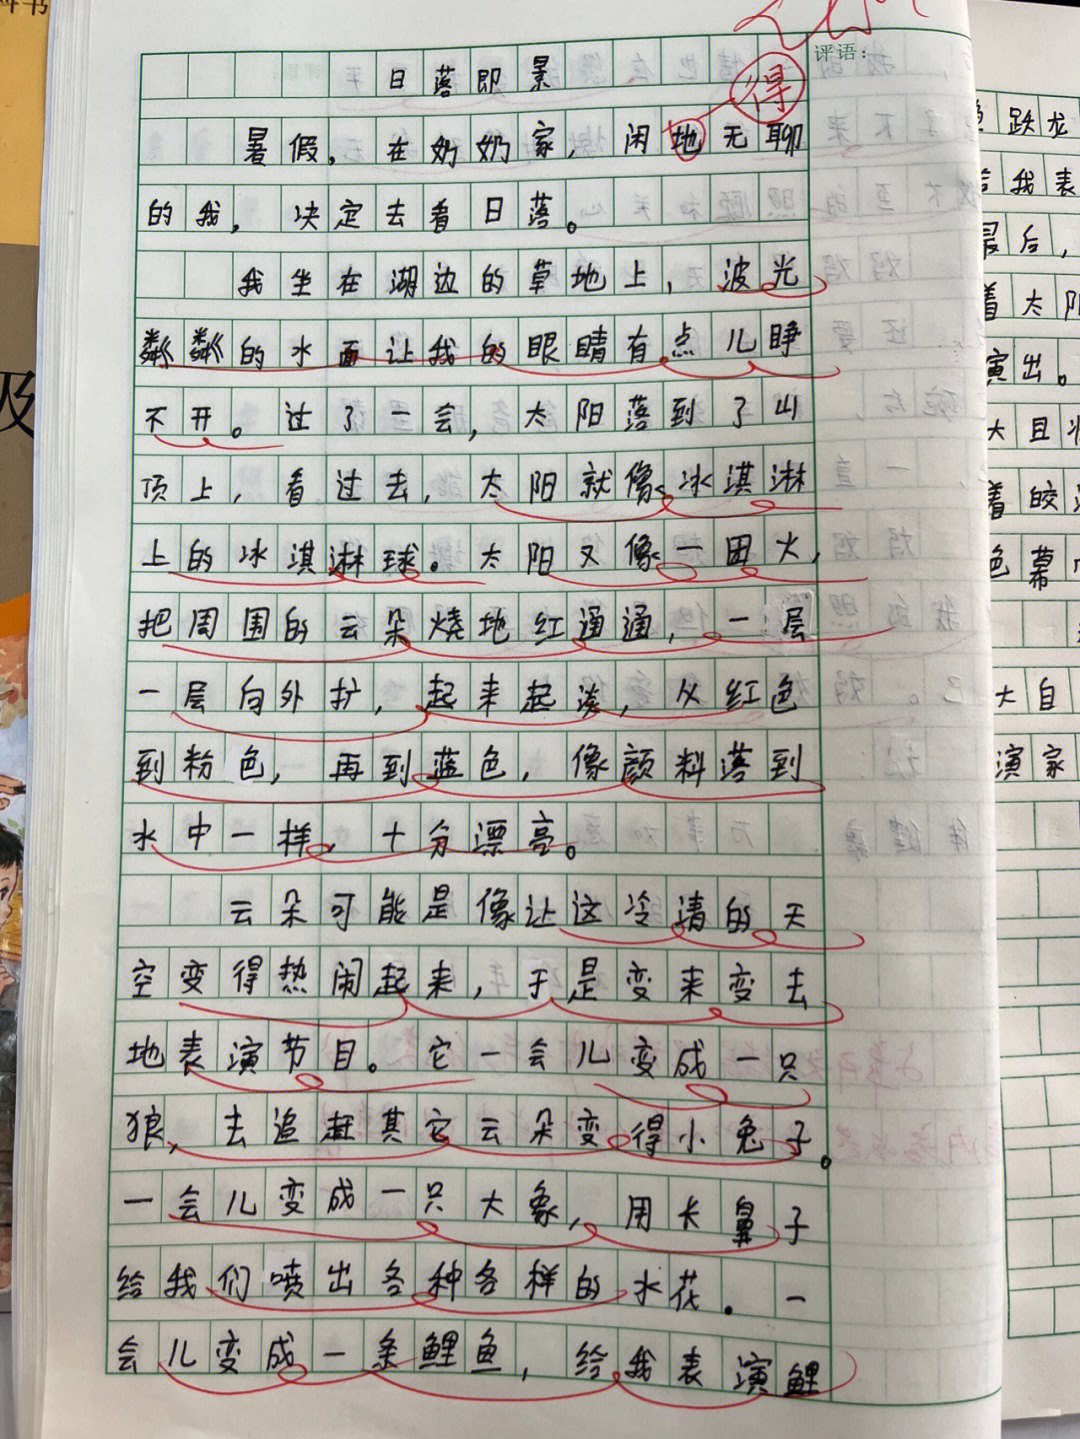 科书
及
评语：
日落即景
得
暑假，在奶奶家，闲地无聊
的我，决定去看日落。
我坐在湖边的草地上，波光
粼粼的水面让我的眼睛有点儿睁
不开。过了一会，太阳落到了山
顶上，看过去，太阳就像冰淇淋
上的冰淇淋球。太阳又像一团火，
把周围的云朵烧地红通通，一层
一层向外扩，起来起淡，从红色
到粉色，再到蓝色，像颜料落到
水中一样，十分漂亮。
云朵可能是像让这冷清的天
空变得热闹起来，于是变来变去
地表演节目。它一会儿变成一只
狼，去追赶其它云朵变得小兔子。
一会儿变成一只大象，用长鼻子
给我们喷出各种各样的水花。一
会儿变成一条鲤鱼，给我表演鲤
鱼跃龙
给我表
最后，
着太阳
演出。
大且
着皎
色幕
大自
演家